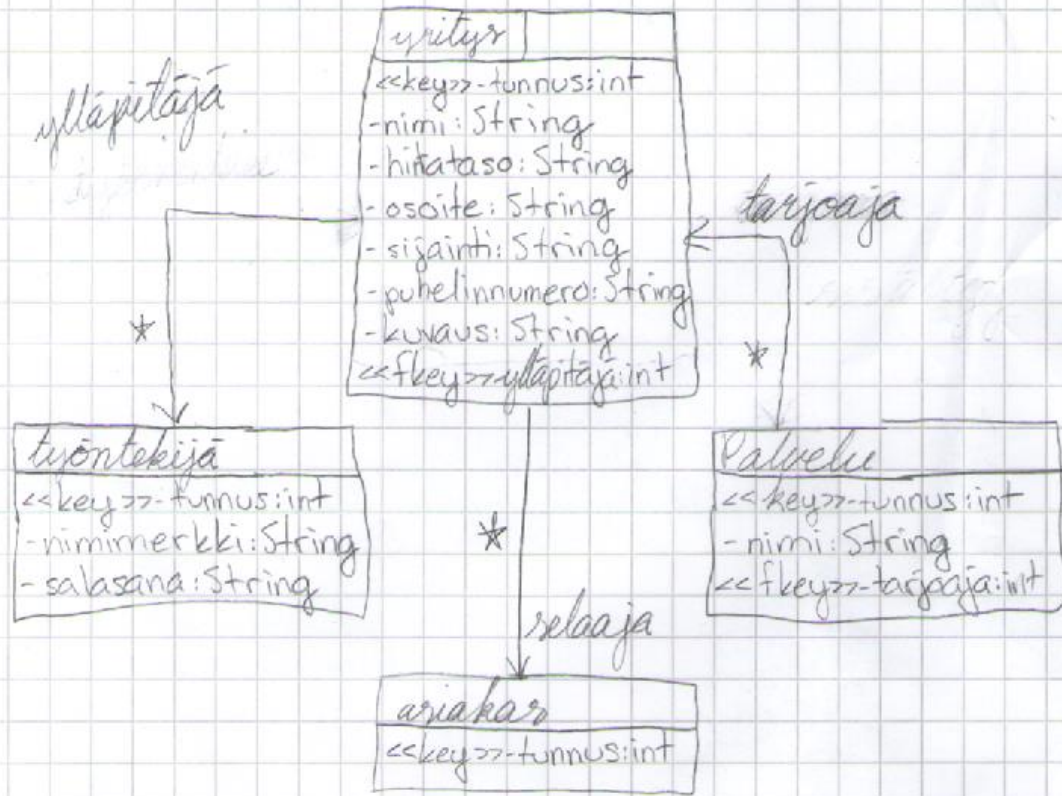 yritys
<<key>>-tunnus:int
-nimi: String
-hintataso: String
-osoite: String
-sijainti: String
-puhelinnumero: String
-kuvaus: String
<<fkey>>-ylläpitäjä:int
ylläpitäjä
*
tarjoaja
*
työntekijä
<<key>>-tunnus:int
-nimimerkki: String
-salasana: String
*
selaaja
Palvelu
<<key>>-tunnus:int
-nimi: String
<<fkey>>-tarjoaja:int
asiakas
<<key>>-tunnus:int